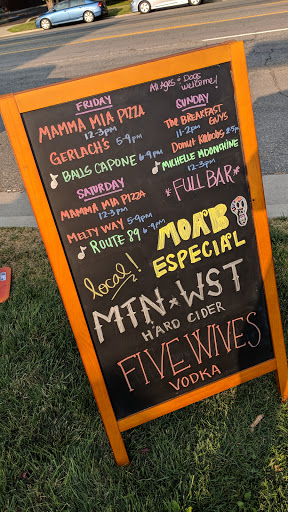 All Ages + Dogs
welcome!
FRIDAY
MAMMA MIA PIZZA
12-3pm
GERLACH'S 5-9pm
BALLS CAPONE 6-9pm
SATURDAY
MAMMA MIA PIZZA
12-3pm
MELTY WAY 5-9pm
ROUTE 89 6-9pm
SUNDAY
THE BREAKFAST
11-2pm GUYS
Donut Kabobs 2-5pm
MICHELLE MOONSHINE
12-3pm
*FULL BAR*
local!
MOAB
ESPECIAL
MTN x WST
HARD CIDER
FIVE WIVES
VODKA